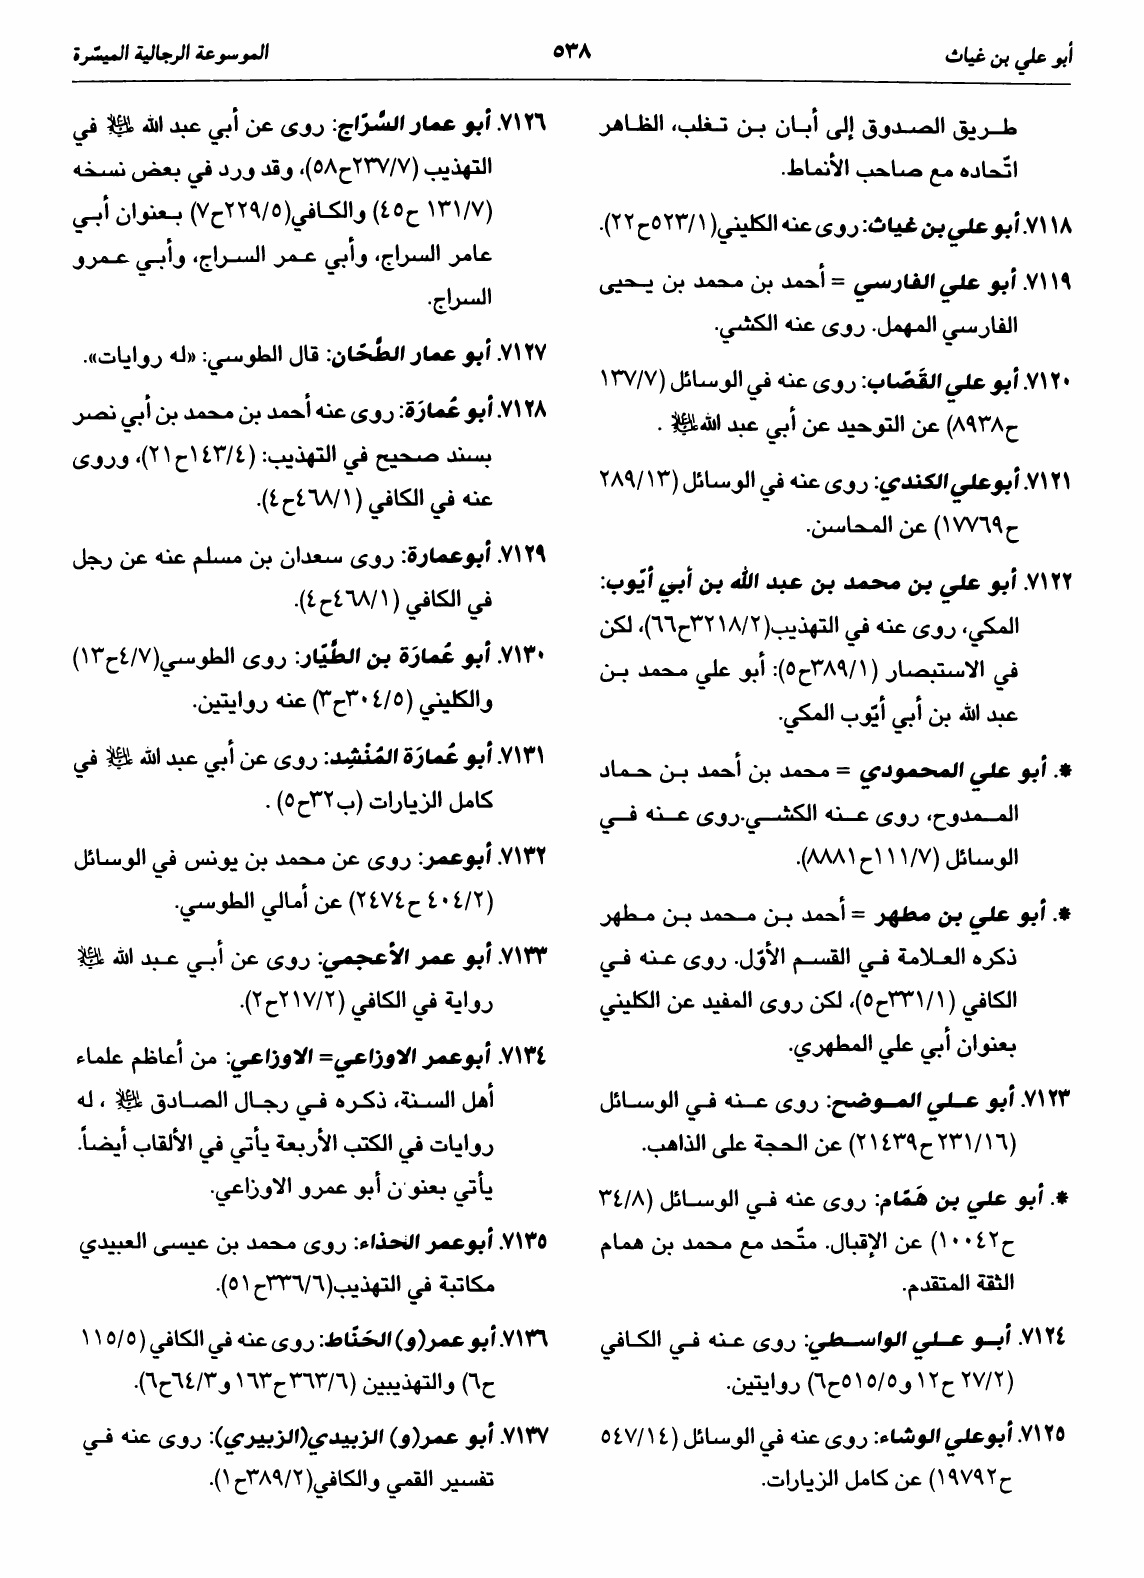 أبو علي بن غياث
٥٣٨
الموسوعة الرجالية الميسّرة
طريق الصدوق إلى أبان بن تغلب، الظاهر
اتّحاده مع صاحب الأنماط.
٧١١٨. أبو علي بن غياث: روى عنه الكليني(٥٢٣/١ح٢٢).
٧١١٩. أبو علي الفارسي = أحمد بن محمد بن يحيى
الفارسي المهمل. روى عنه الكشي.
٧١٢٠. أبو علي القَصّاب: روى عنه في الوسائل (١٣٧/٧
ح٨٩٣٨) عن التوحيد عن أبي عبد الله عليه السلام .
٧١٢١. أبوعلي الكندي: روى عنه في الوسائل (٢٨٩/١٣
ح١٧٧٦٩) عن المحاسن.
٧١٢٢. أبو علي بن محمد بن عبد الله بن أبي أيّوب:
المكي، روى عنه في التهذيب(٣٢١٨/٢ح٦٦)، لكن
في الاستبصار (٣٨٩/١ح٥): أبو علي محمد بن
عبد الله بن أبي أيّوب المكي.
*. أبو علي المحمودي = محمد بن أحمد بن حماد
الممدوح، روى عنه الكشي.روى عنه في
الوسائل (١١١/٧ح٨٨٨١).
*. أبو علي بن مطهر = أحمد بن محمد بن مطهر
ذكره العلامة في القسم الأوّل. روى عنه في
الكافي (٣٣١/١ح٥)، لكن روى المفيد عن الكليني
بعنوان أبي علي المطهري.
٧١٢٣. أبو علي الموضح: روى عنه في الوسائل
(٢٣١/١٦ح٢١٤٣٩) عن الحجة على الذاهب.
*. أبو علي بن هَمّام: روى عنه في الوسائل (٣٤/٨
ح١٠٠٤٢) عن الإقبال. متّحد مع محمد بن همام
الثقة المتقدم.
٧١٢٤. أبو علي الواسطي: روى عنه في الكافي
(٢٧/٢ ح١٢ و٥١٥/٥ح٦) روايتين.
٧١٢٥. أبوعلي الوشاء: روى عنه في الوسائل (٥٤٧/١٤
ح١٩٧٩٢) عن كامل الزيارات.
٧١٢٦. أبو عمار السَّرّاج: روى عن أبي عبد الله عليه السلام في
التهذيب (٢٣٧/٧ح٥٨)، وقد ورد في بعض نسخه
(١٣١/٧ ح٤٥) والكافي(٢٢٩/٥ح٧) بعنوان أبي
عامر السراج، وأبي عمر السراج، وأبي عمرو
السراج.
٧١٢٧. أبو عمار الطَّحّان: قال الطوسي: «له روايات».
٧١٢٨. أبو عُمارَة: روى عنه أحمد بن محمد بن أبي نصر
بسند صحيح في التهذيب: (١٤٣/٤ح٢١)، وروى
عنه في الكافي (٤٦٨/١ح٤).
٧١٢٩. أبوعمارة: روى سعدان بن مسلم عنه عن رجل
في الكافي (٤٦٨/١ح٤).
٧١٣٠. أبو عُمارَة بن الطَّيّار: روى الطوسي(٤/٧ح١٣)
والكليني (٣٠٤/٥ح٣) عنه روايتين.
٧١٣١. أبو عُمارَة المُنْشِد: روى عن أبي عبد الله عليه السلام في
كامل الزيارات (ب٣٢ح٥) .
٧١٣٢. أبوعمر: روى عن محمد بن يونس في الوسائل
(٤٠٤/٢ ح٢٤٧٤) عن أمالي الطوسي.
٧١٣٣. أبو عمر الأعجمي: روى عن أبي عبد الله عليه السلام
رواية في الكافي (٢١٧/٢ح٢).
٧١٣٤. أبوعمر الاوزاعي= الاوزاعي: من أعاظم علماء
أهل السنة، ذكره في رجال الصادق عليه السلام ، له
روايات في الكتب الأربعة يأتي في الألقاب أيضاً.
يأتي بعنون أبو عمرو الاوزاعي.
٧١٣٥. أبوعمر الحذاء: روى محمد بن عيسى العبيدي
مكاتبة في التهذيب(٣٣٦/٦ح٥١).
٧١٣٦. أبو عمر(و) الحَنّاط: روى عنه في الكافي (١١٥/٥
ح٦) والتهذيبين (٣٦٣/٦ح١٦٣ و٦٤/٣ح٦).
٧١٣٧. أبو عمر(و) الزبيدي(الزبيري): روى عنه في
تفسير القمي والكافي(٣٨٩/٢ح١).